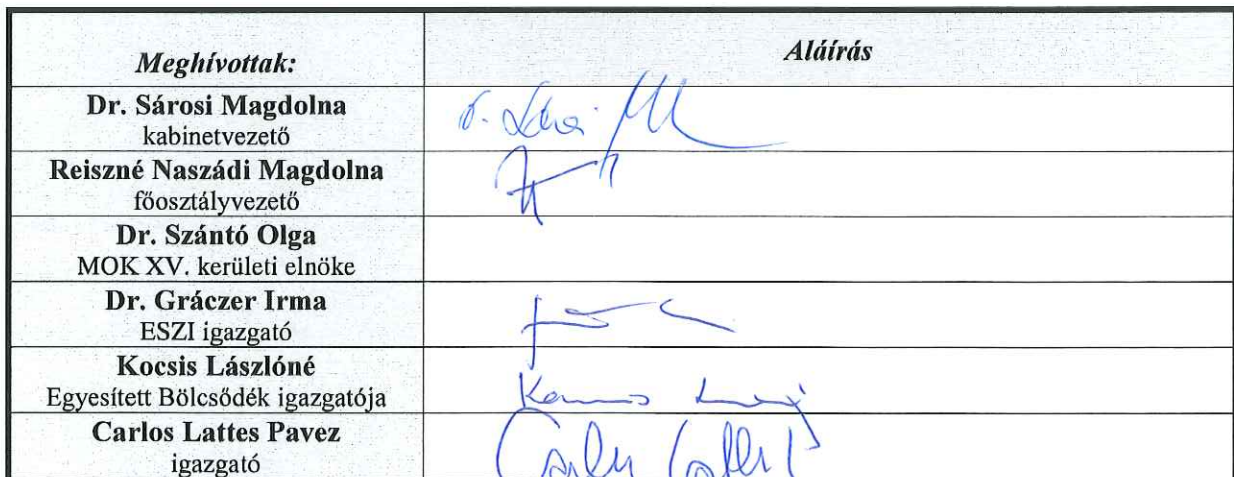 Meghívottak:
Aláírás
Dr. Sárosi Magdolna
kabinetvezető
Reiszné Naszádi Magdolna
főosztályvezető
Dr. Szántó Olga
MOK XV. kerületi elnöke
Dr. Gráczer Irma
ESZI igazgató
Kocsis Lászlóné
Egyesített Bölcsődék igazgatója
Carlos Lattes Pavez
igazgató